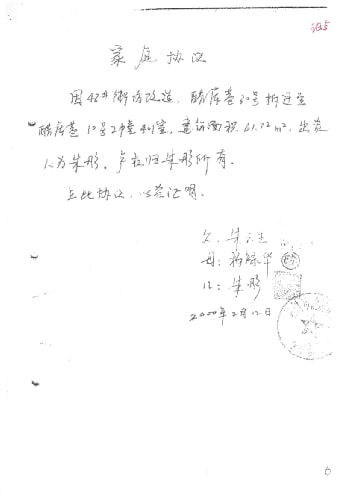 证5
家庭协议
因42#街坊改造,醋库巷30号拆迁至
醋库巷10号2幢401室,建筑面积61.72m²,出资
人为朱彤,产权归朱彤所有。
立此协议,以兹证明。
父:朱
母:华
儿:朱彤
2000年2月12日
6